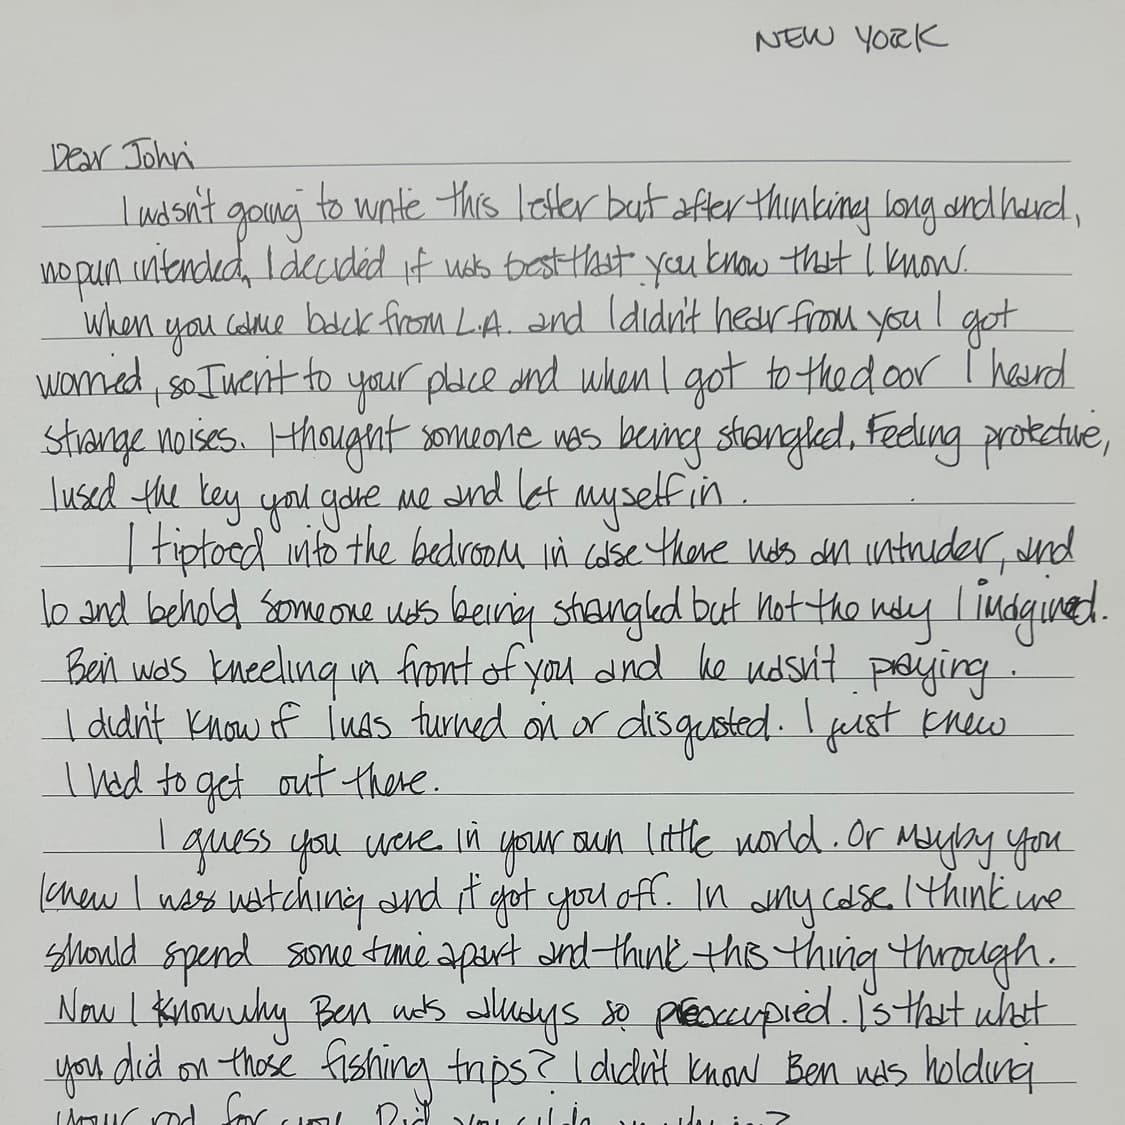 NEW YORK
Dear John
I wasn't going to write this letter but after thinking long and hard,
no pun intended, I decided it was best that you know that I know.
When you came back from L.A. and I didn't hear from you I got
worried, so I went to your place and when I got to the door I heard
strange noises. I thought someone was being strangled. Feeling protective,
I used the key you gave me and let myself in.
I tiptoed into the bedroom in case there was an intruder, and
lo and behold someone was being strangled but not the way I imagined.
Ben was kneeling in front of you and he wasn't praying.
I didn't know if I was turned on or disgusted. I just knew
I had to get out there.
I guess you were in your own little world. Or mayby you
knew I was watching and it got you off. In any case I think we
should spend some time apart and think this thing through.
Now I know why Ben was always so preoccupied. Is that what
you did on those fishing trips? I didn't know Ben was holding
your rod for you. Did you